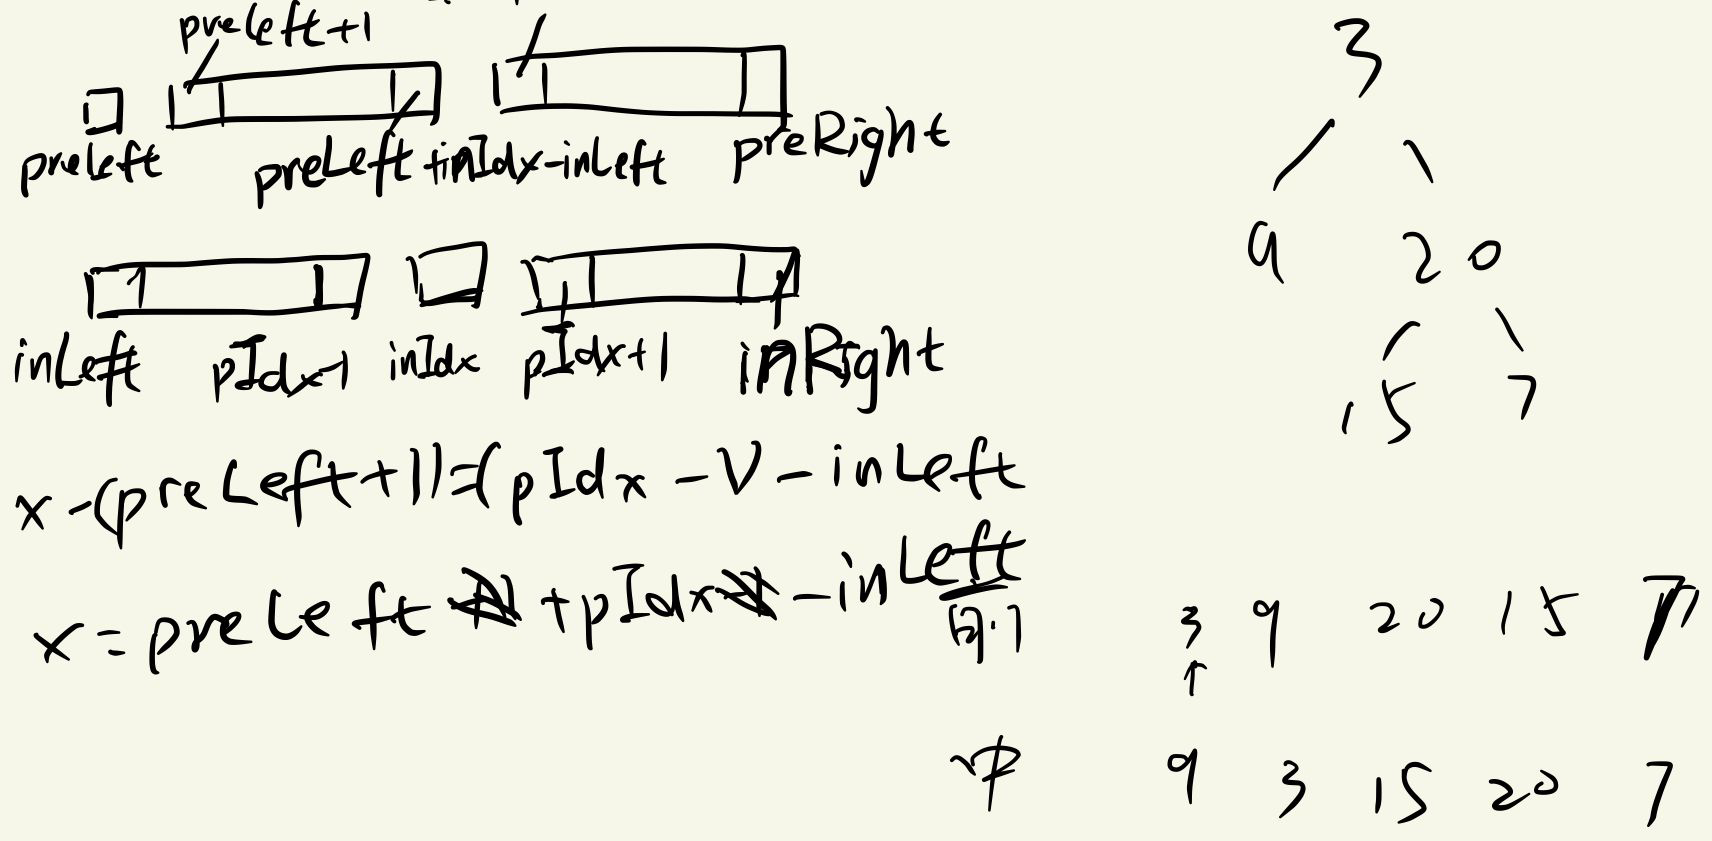 preLeft+1
preLeft preLeft+inIdx-inLeft preRight
inLeft pIdx-1 inIdx pIdx+1 inRight
x-(preLeft+1)=(pIdx-1)-inLeft
x=preLeft+pIdx-inLeft
3
9 20
15 7
前 3 9 20 15 7
↑
中 9 3 15 20 7